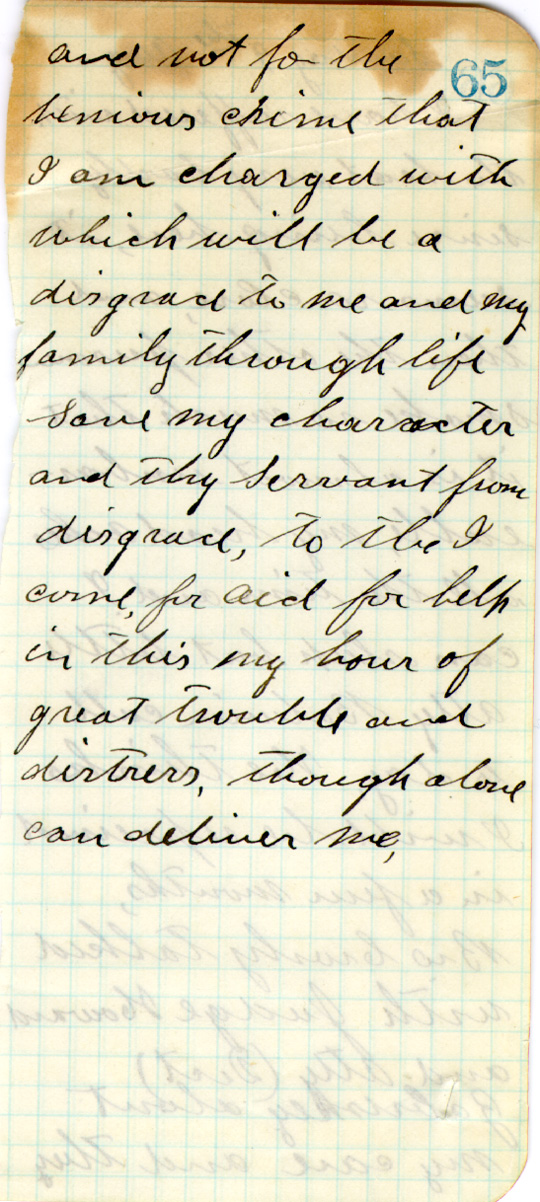 65
and not fo the
henious chrime that
I am charged with
which will be a
disgrace to me and my
family through life
save my character
and thy servant from
disgrace, to the I
come, for aid for help
in this my hour of
great trouble and
distress, though alone
can deliver me,